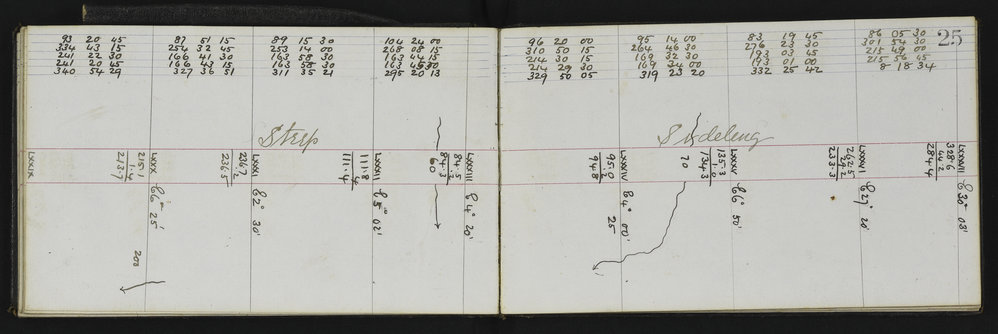 93 20 45 87 51 15 89 15 30 104 24 00
334 43 15 254 32 45 253 14 00 268 08 15
241 22 30 166 41 30 163 58 30 163 44 15
241 20 45 166 43 15 163 58 30 163 45 30
340 54 29 327 36 51 311 35 21 295 20 13
Steep
LXXIX
215.1
1.4
213.7
LXXX
E 6° 25'
200
236.7
.2
236.5
LXXXI
E 2° 30'
111.8
.4
111.4
LXXXII
E 5° 02'
84.5
.2
84.3
60
LXXXIII
E 4° 20'
25
96 20 00 95 14 00 83 19 45 86 05 30
310 50 15 264 46 30 276 23 30 301 54 30
214 30 15 169 32 30 193 03 45 215 49 00
214 29 30 169 34 00 193 01 00 215 56 45
329 50 05 319 23 20 332 25 42 8 18 34
Sideleng
95.0
.2
94.8
LXXXIV
E 4° 00'
25
70
135.3
1.0
134.3
LXXXV
E 6° 50'
262.5
29.2
233.3
LXXXVI
E 27° 20'
328.6
44.2
284.4
LXXXVII
E 30° 03'